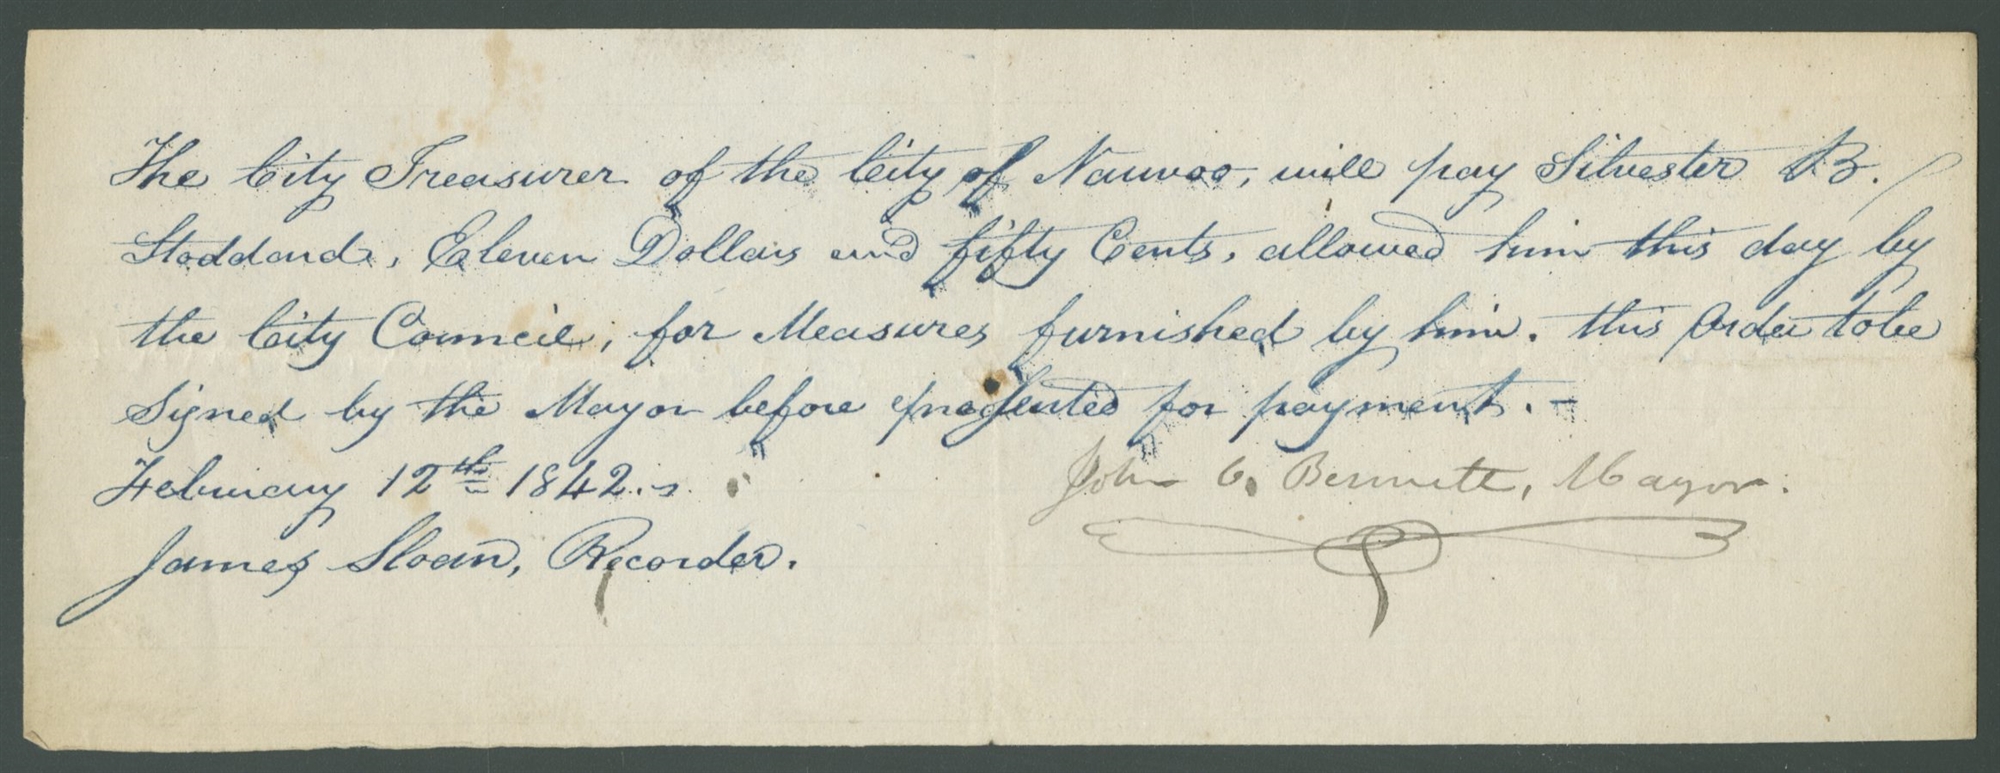 The City Treasurer of the City of Nauvoo, will pay Silvester B.
Stoddard, Eleven Dollars and fifty Cents, allowed him this day by
the City Council, for Measures furnished by him. this Order to be
Signed by the Mayor before presented for payment.-
February 12th 1842.
John C. Bennett, Mayor.
James Sloan, Recorder.